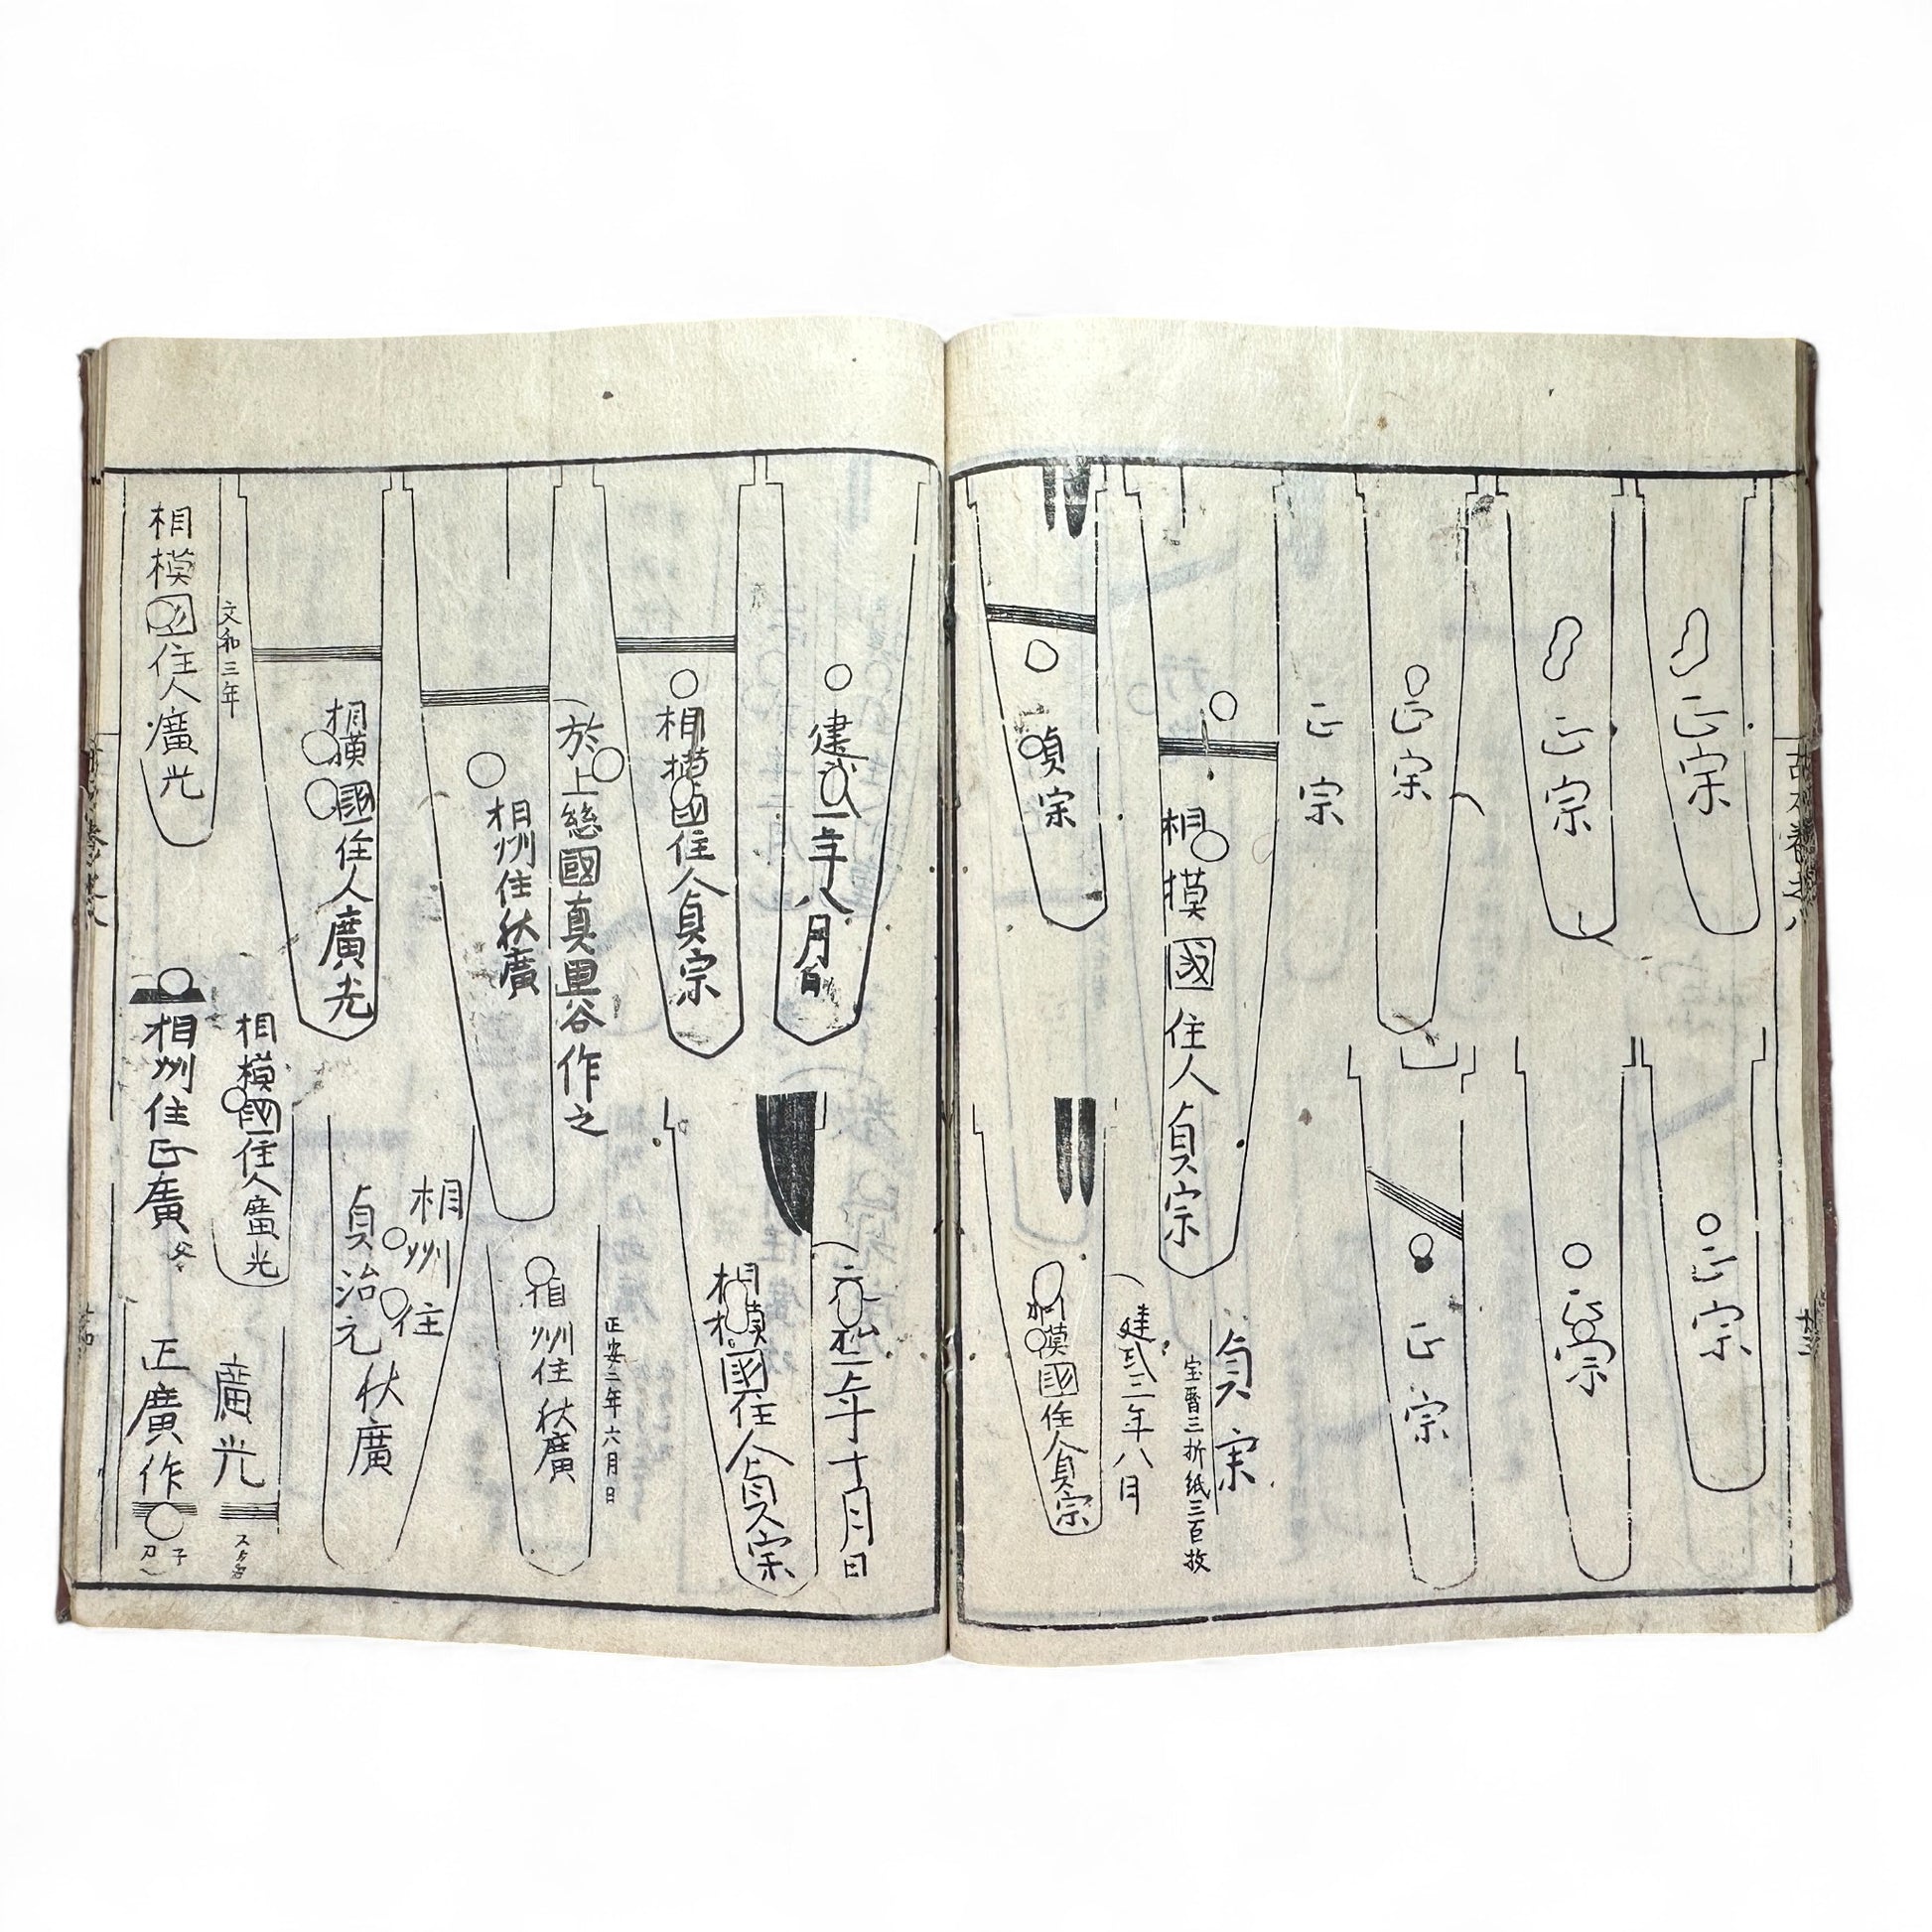 正宗
正宗
正宗
正宗
正宗
正宗
正宗
相模國住人貞宗
貞宗
宝暦三折紙三百枚
貞宗
建武三年八月
相模國住人貞宗
建武二年八月日
相模國住人貞宗
元弘二年十月日
相模國住人貞宗
於上総國真里谷作之
相州住秋廣
正安三年六月日
相州住秋廣
相模國住人廣光
相州住
貞治元秋廣
文和三年
相模國住人廣光
相模國住人廣光
相州住正廣
廣光
正廣作